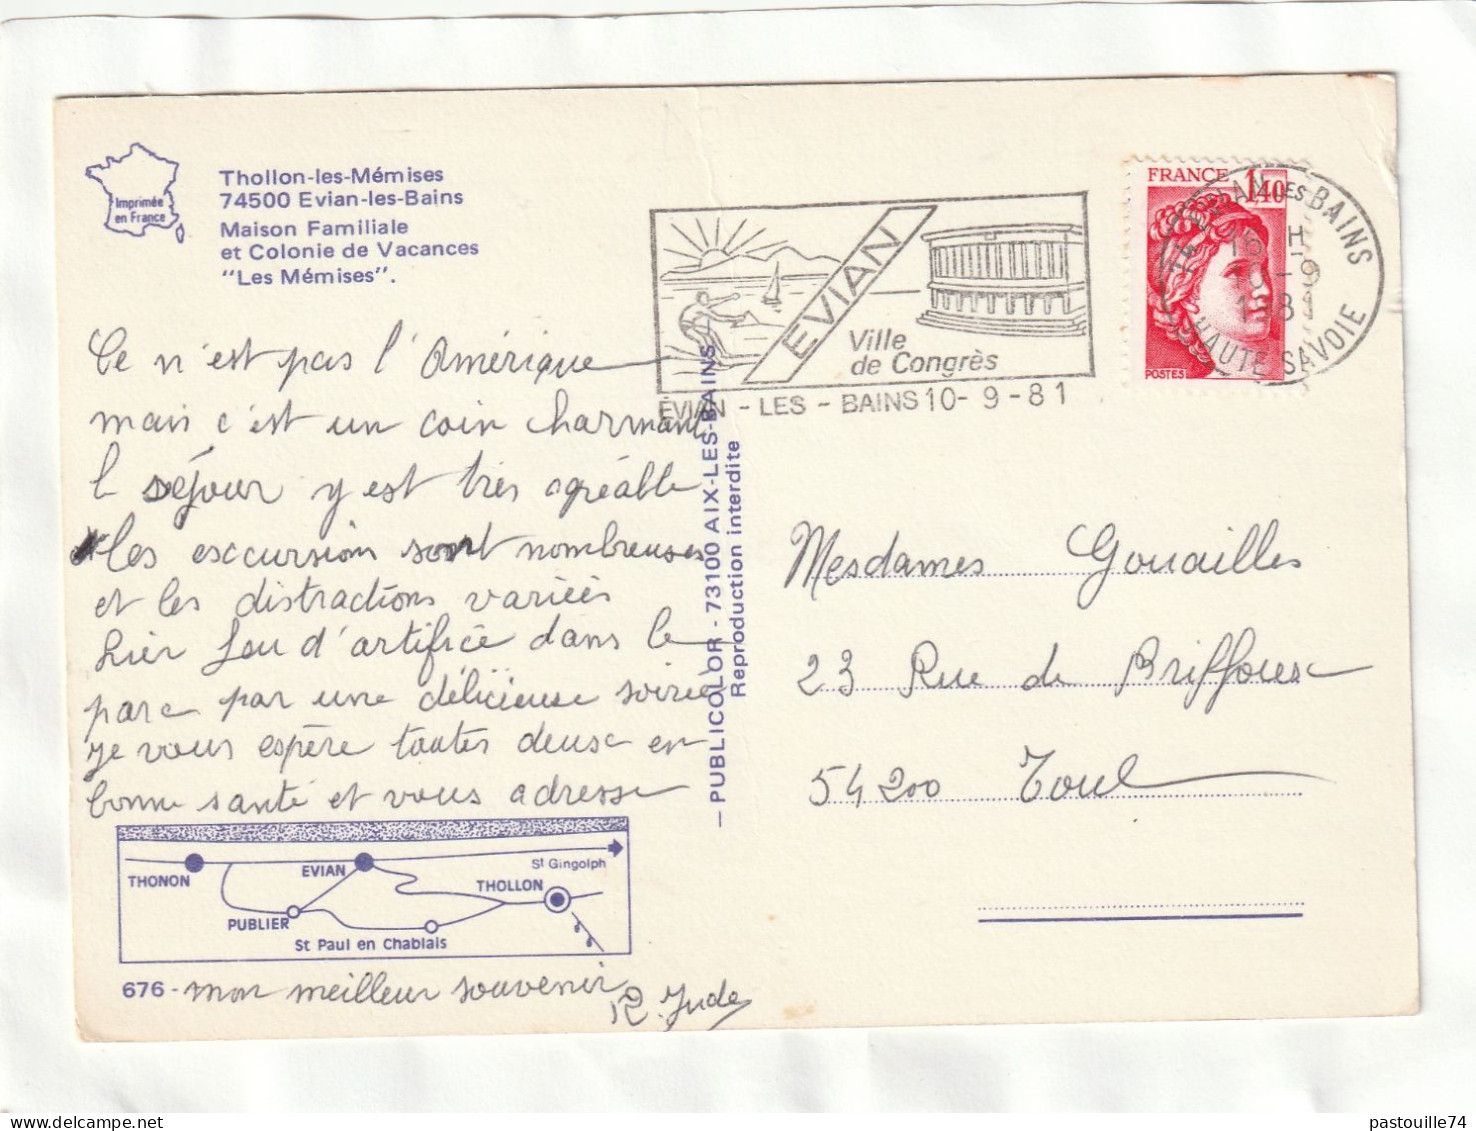 Imprimée
en France
Thollon-les-Mémises
74500 Evian-les-Bains
Maison Familiale
et Colonie de Vacances
"Les Mémises".
Ce n'est pas l'Amérique
mais c'est un coin charmant
l séjour y est très agréable
les esccursion sont nombreuses
et les distractions variées
hier feu d'artifice dans le
parc par une délicieuse soirée
je vous espère toutes deux en
bonne santé et vous adresse
THONON
EVIAN
St Gingolph
THOLLON
PUBLIER
St Paul en Chablais
676 - mon meilleur souvenir
R. Jude
— PUBLICOLOR - 73100 AIX-LES-BAINS —
Reproduction interdite
EVIAN
Ville
de Congrès
EVIAN - LES - BAINS 10 - 9 - 81
FRANCE 1,40
POSTES
74 EVIAN LES BAINS
16 H
10 - 9
1981
HAUTE SAVOIE
Mesdames Gouailles
23 Rue de Briffoux
54200 Toul
pastouille74